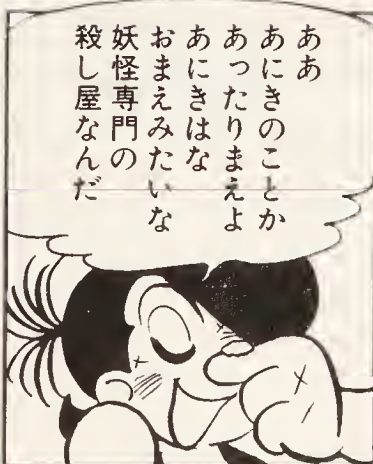 ああ
あにきのことか
あったりまえよ
あにきはな
おまえみたいな
妖怪専門の
殺し屋なんだ